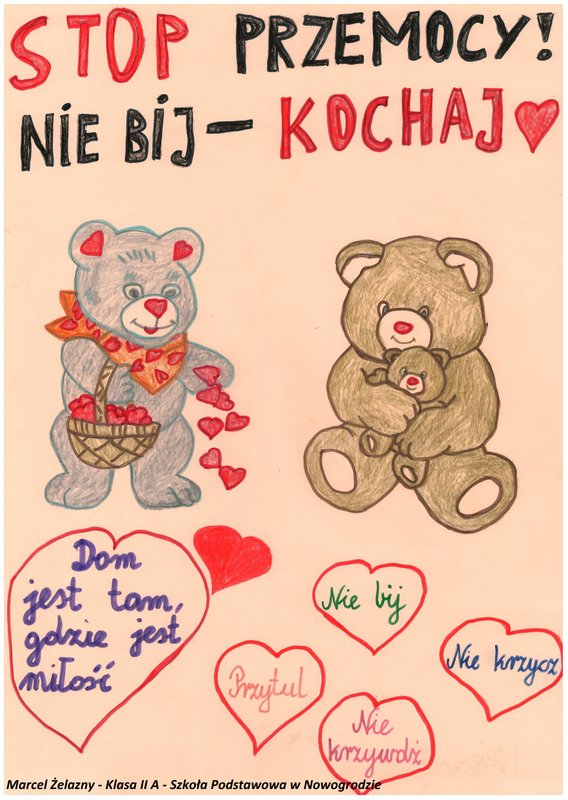 STOP PRZEMOCY!
NIE BIJ – KOCHAJ
Dom
jest tam,
gdzie jest
miłość
Nie bij
Nie krzycz
Przytul
Nie
krzywdź
Marcel Żelazny - Klasa II A - Szkoła Podstawowa w Nowogrodzie